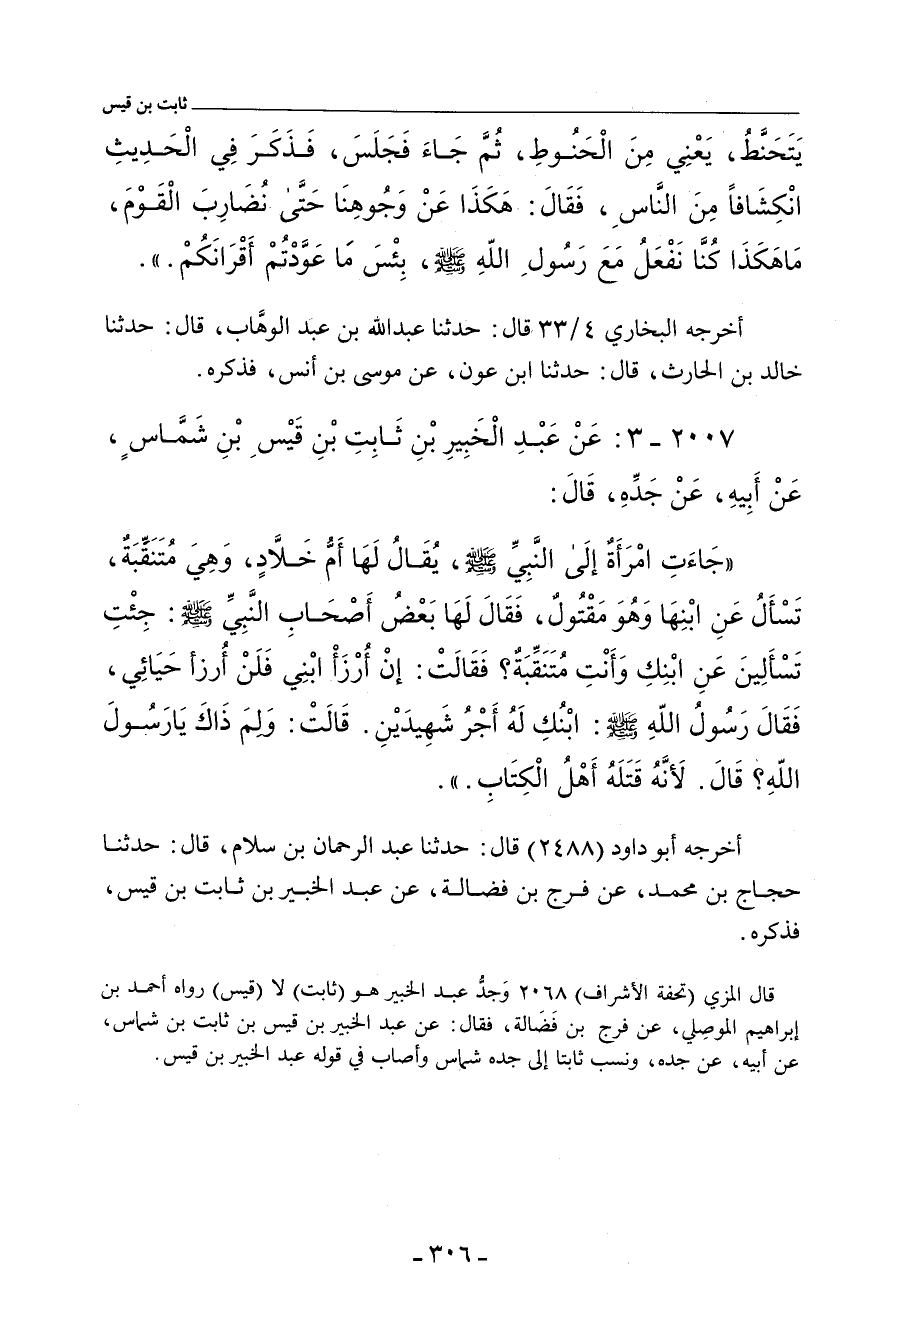 ثابت بن قيس
يَتَحَنَّطُ، يَعْنِي مِنَ الْحَنُوطِ، ثُمَّ جَاءَ فَجَلَسَ، فَذَكَرَ فِي الْحَدِيثِ
انْكِشَافاً مِنَ النَّاسِ، فَقَالَ: هَكَذَا عَنْ وَجُوهِنَا حَتَّىٰ نُضَارِبَ الْقَوْمَ،
مَاهَكَذَا كُنَّا نَفْعَلُ مَعَ رَسُولِ اللّهِ ﷺ، بِئْسَ مَا عَوَّدْتُمْ أَقْرَانَكُمْ.».
أخرجه البخاري ٣٣/٤ قال: حدثنا عبدالله بن عبد الوهَّاب، قال: حدثنا
خالد بن الحارث، قال: حدثنا ابن عون، عن موسى بن أنس، فذكره.
٢٠٠٧ - ٣: عَنْ عَبْدِ الْخَبِيرِ بْنِ ثَابِتِ بْنِ قَيْسِ بْنِ شَمَّاسٍ،
عَنْ أَبِيهِ، عَنْ جَدِّهِ، قَالَ:
«جَاءَتِ امْرَأَةٌ إِلَىٰ النَّبِيِّ ﷺ، يُقَالُ لَهَا أُمُّ خَلَّادٍ، وَهِيَ مُتَنَقِّبَةٌ،
تَسْأَلُ عَنِ ابْنِهَا وَهُوَ مَقْتُولٌ، فَقَالَ لَهَا بَعْضُ أَصْحَابِ النَّبِيِّ ﷺ: جِئْتِ
تَسْأَلِينَ عَنِ ابْنِكِ وَأَنْتِ مُتَنَقِّبَةٌ؟ فَقَالَتْ: إِنْ أُرْزَأْ ابْنِي فَلَنْ أُرزأ حَيَائِي،
فَقَالَ رَسُولُ اللّهِ ﷺ: ابْنُكِ لَهُ أَجْرُ شَهِيدَيْنِ. قَالَتْ: وَلِمَ ذَاكَ يَارَسُولَ
اللّهِ؟ قَالَ. لَأَنَّهُ قَتَلَهُ أَهْلُ الْكِتَابِ.».
أخرجه أبو داود (٢٤٨٨) قال: حدثنا عبد الرحمان بن سلام، قال: حدثنا
حجاج بن محمد، عن فرج بن فضالة، عن عبد الخبير بن ثابت بن قيس،
فذكره.
قال المزي (تحفة الأشراف) ٢٠٦٨ وَجدُّ عبد الخبير هو (ثابت) لا (قيس) رواه أحمد بن
إبراهيم الموصِلي، عن فرج بن فَضَالة، فقال: عن عبد الخبير بن قيس بن ثابت بن شماس،
عن أبيه، عن جده، ونسب ثابتا إلى جده شماس وأصاب في قوله عبد الخبير بن قيس.
- ٣٠٦ -